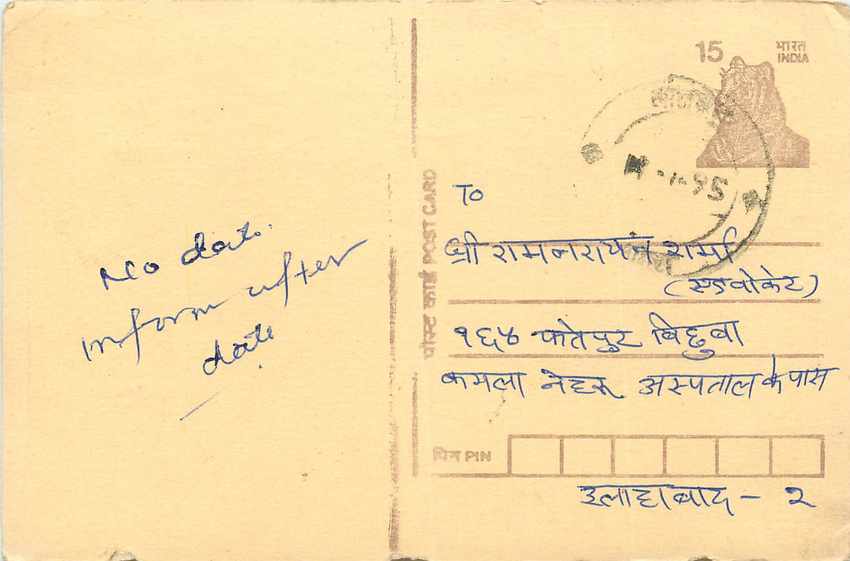 No date.
inform after
date
पोस्ट कार्ड POST CARD
15
भारत
INDIA
-1-95
To
श्री रामनरायन शर्मा
(एडवोकेट)
१६५ फतेपुर बिछुवा
कमला नेहरू अस्पताल के पास
पिन PIN
इलाहाबाद - २